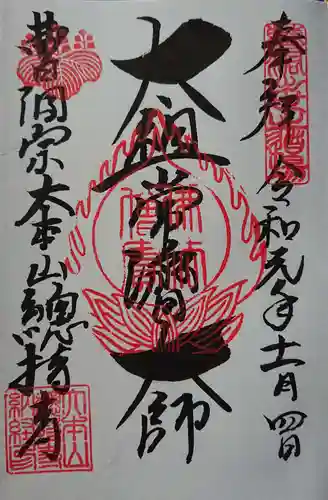 奉拝 令和元年十一月四日
大祖常済大師
曹洞宗大本山總持寺